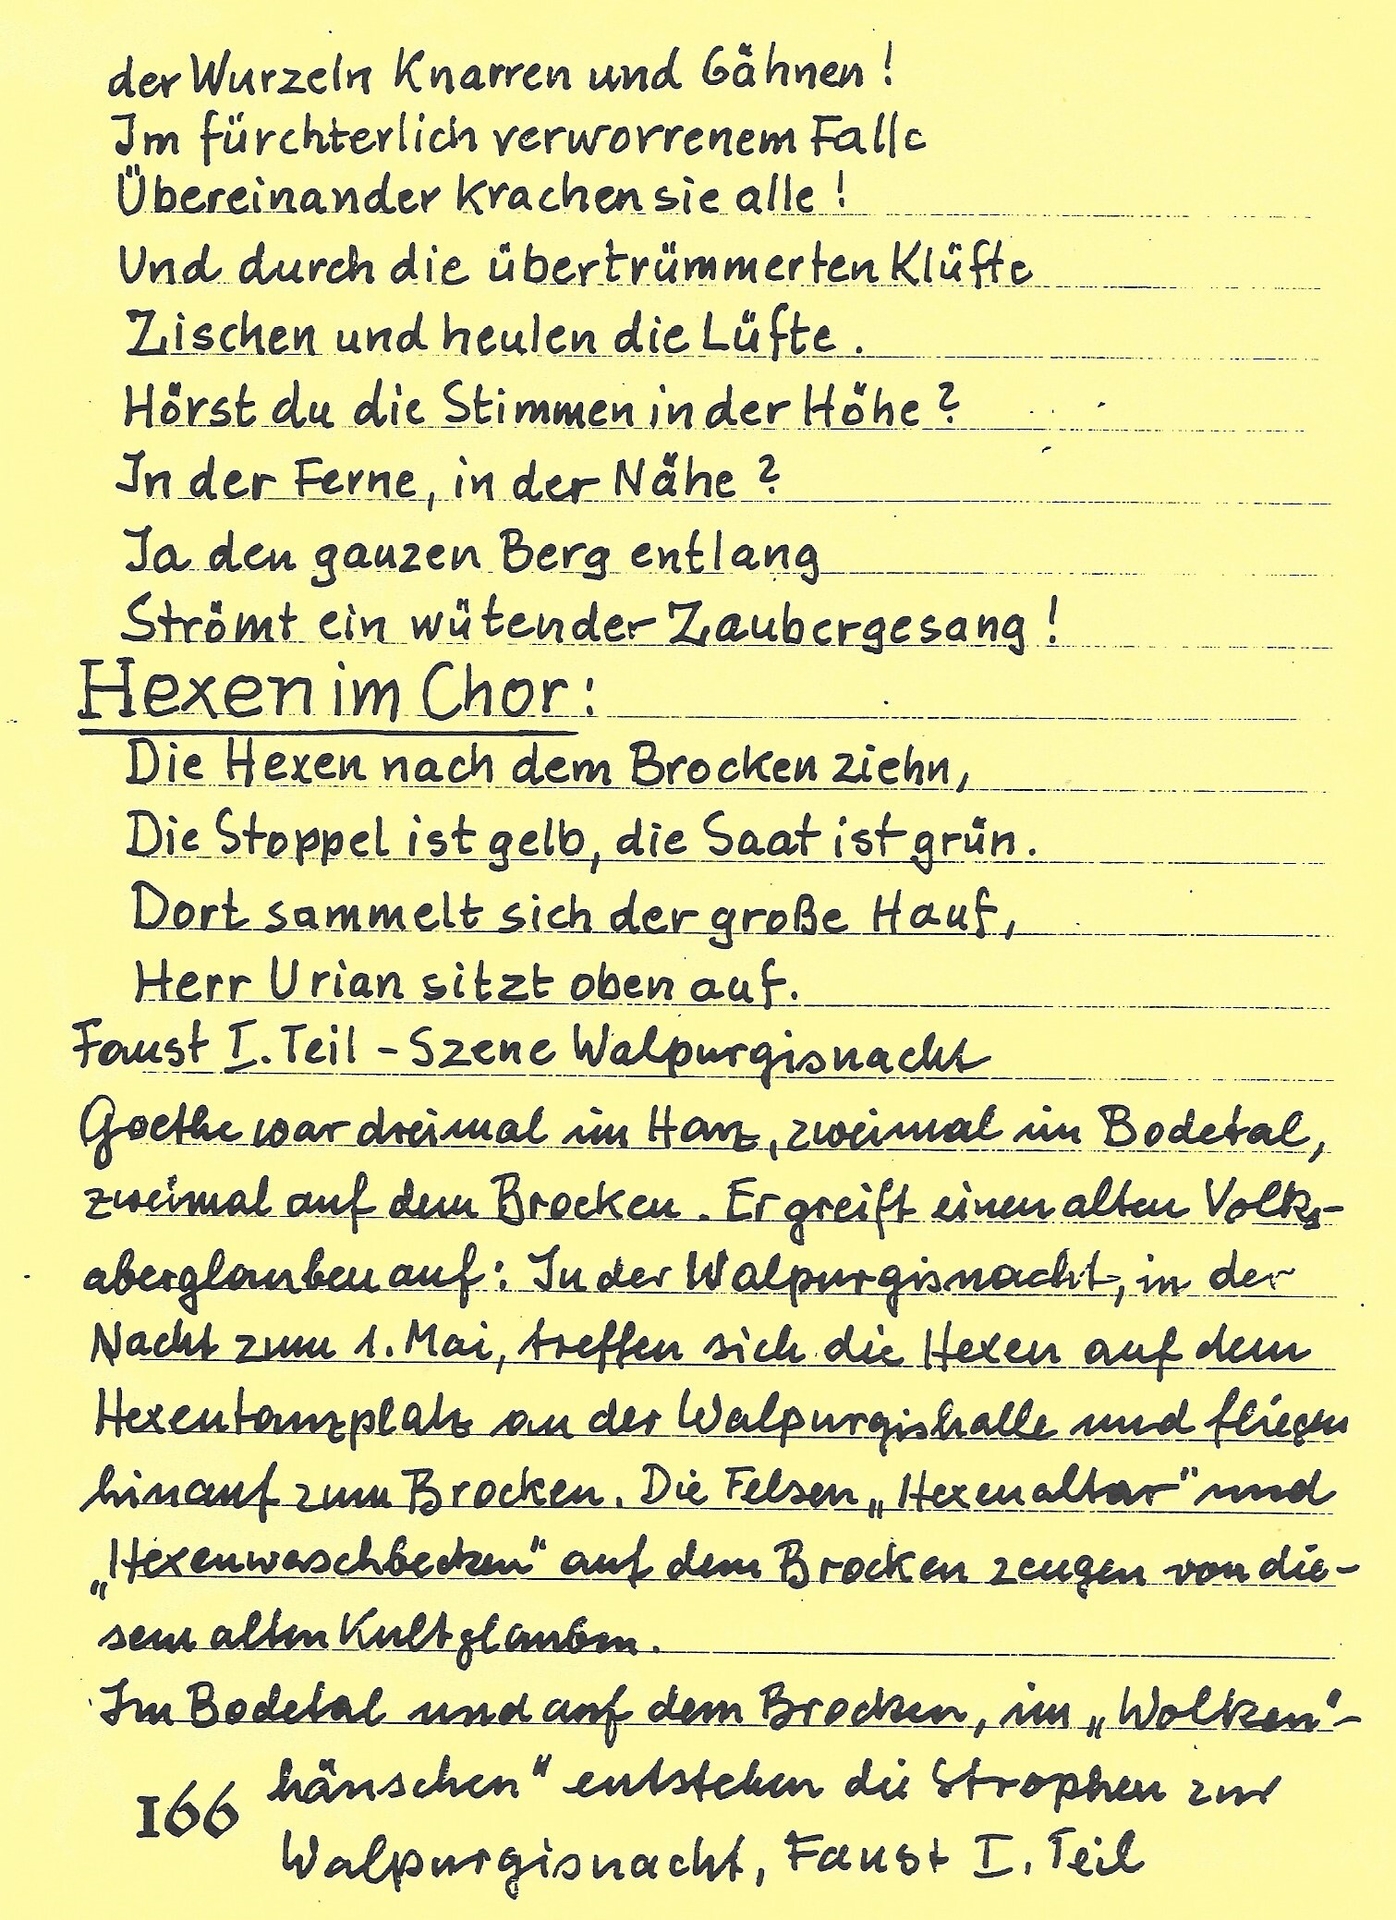 der Wurzeln Knarren und Gähnen !
Im fürchterlich verworrenem Falle
Übereinander krachen sie alle !
Und durch die übertrümmerten Klüfte
Zischen und heulen die Lüfte .
Hörst du die Stimmen in der Höhe ?
In der Ferne, in der Nähe ?
Ja den ganzen Berg entlang
Strömt ein wütender Zaubergesang !
Hexen im Chor :
Die Hexen nach dem Brocken ziehn,
Die Stoppel ist gelb, die Saat ist grün.
Dort sammelt sich der große Hauf,
Herr Urian sitzt oben auf.
Faust I. Teil - Szene Walpurgisnacht
Goethe war dreimal im Harz, zweimal im Bodetal,
zweimal auf dem Brocken. Er greift einen alten Volks-
aberglauben auf : In der Walpurgisnacht, in der
Nacht zum 1. Mai, treffen sich die Hexen auf dem
Hexentanzplatz an der Walpurgishalle und fliegen
hinauf zum Brocken. Die Felsen „Hexenaltar" und
„Hexenwaschbecken" auf dem Brocken zeugen von die-
sem alten Kultglauben.
Im Bodetal und auf dem Brocken, im „Wolken"-
häuschen" entstehen die Strophen zur
166
Walpurgisnacht, Faust I. Teil